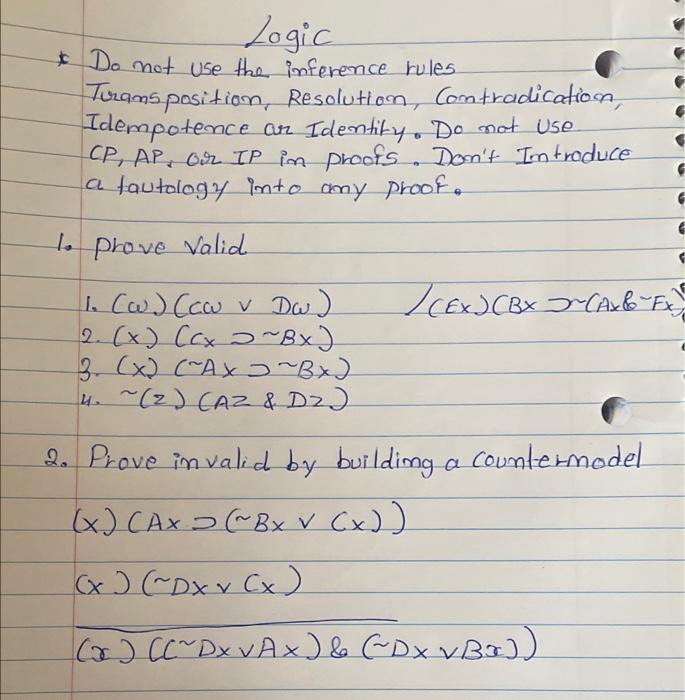 Logic
* Do not use the inference rules
Transposition, Resolution, Contradication,
Idempotence or Identity. Do not Use
CP, AP, or IP in proofs. Don't Introduce
a tautology into any proof.
1. prove Valid
1. (ω) (Cω v Dω) /(Ex)(Bx ⊃ ~(Ax & ~Fx)
2. (x) (Cx ⊃ ~Bx)
3. (x) (~Ax ⊃ ~Bx)
4. ~(z) (Az & Dz)
2. Prove invalid by building a countermodel
(x) (Ax ⊃ (~Bx v Cx))
(x) (~Dx v Cx)
(x) ((~Dx v Ax) & (~Dx v Bx))